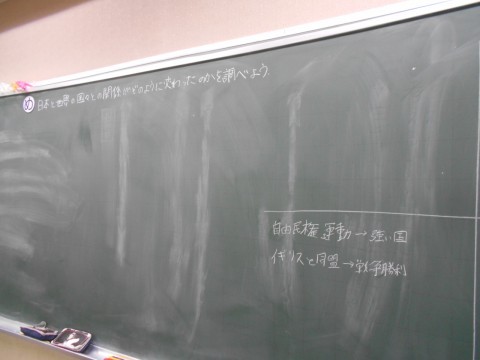 め 日本と世界の国々との関係がどのように変わったのかを調べよう。
自由民権運動→強い国
イギリスと同盟→戦争勝利